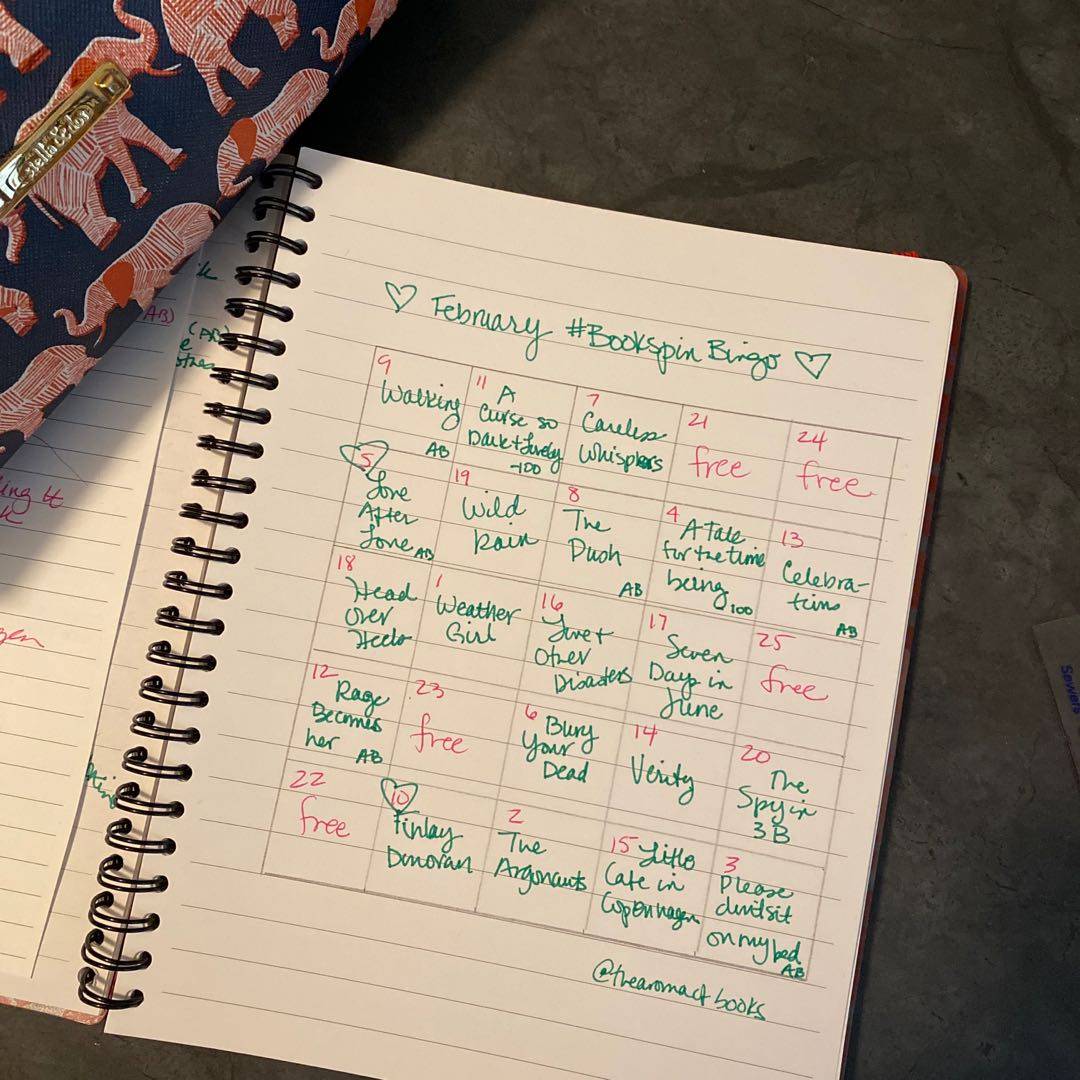 stella & dot
February #Bookspin Bingo
9
Walking
AB
11 A
Curse so
Dark + Lonely
-100
7
Careless
Whispers
21
free
24
free
5
Love
After
Love AB
19
Wild
Rain
8
The
Push
AB
4
A Tale
for the time
being
100
13
Celebra-
tions
AB
18
Head
over
Heels
1
Weather
Girl
16
Love +
Other
Disasters
17
Seven
Days in
June
25
free
12
Rage
Becomes
her AB
23
free
6 Bury
Your
Dead
14
Verity
20
The
Spy in
3B
22
free
10
Finlay
Donovan
2
The
Argonauts
15 Little
Cafe in
Copenhagen
3
Please
dont sit
on my bed
AB
@thearomaofbooks
AB)
(AB)
Sewers